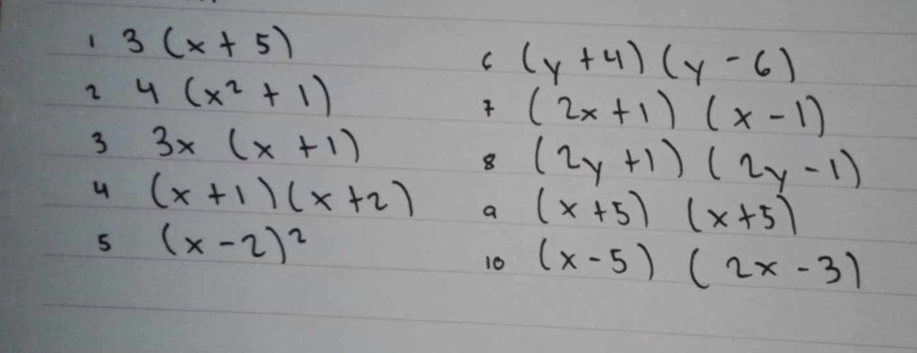 1 3 (x + 5)
2 4 (x² + 1)
3 3x (x + 1)
4 (x + 1) (x + 2)
5 (x - 2)²
6 (y + 4) (y - 6)
7 (2x + 1) (x - 1)
8 (2y + 1) (2y - 1)
9 (x + 5) (x + 5)
10 (x - 5) (2x - 3)